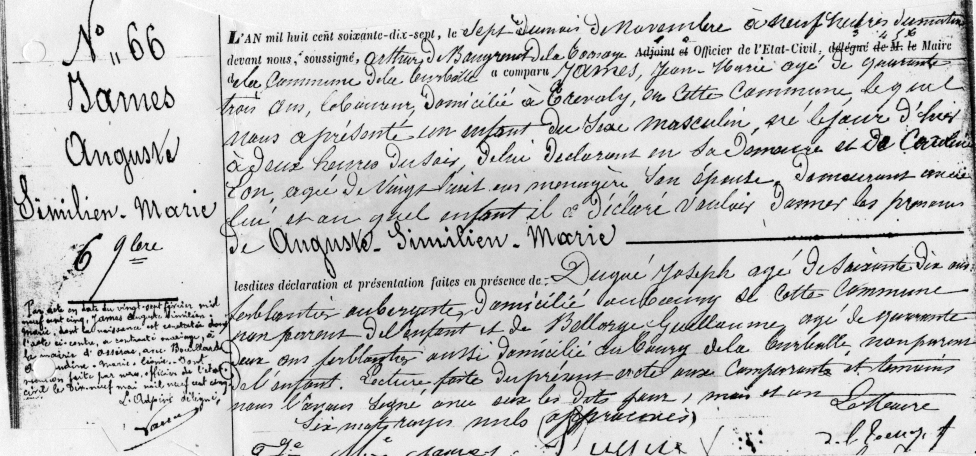 N° 66
James
Auguste
Similien-Marie
6 9bre
Par acte en date du vingt-sept février mil
neuf cent cinq, James Auguste Similien
Marie, dont la naissance est constatée dans
l'acte ci contre, a contracté mariage à
la mairie d'Assérac, avec
marie
mention faite par nous, officier de l'état
civil le dix-neuf mai mil neuf cent cinq
L'Adjoint délégué,
L'AN mil huit cent soixante-dix-sept, le sept du mois de Novembre à neuf heures du matin
devant nous, soussigné, Arthur de la Adjoint et Officier de l'Etat-Civil, délégué de M. le Maire
de la Commune de la Turballe a comparu James, Jean-Marie agé de quarante
trois ans, laboureur, domicilié à Trevaly, en cette Commune lequel
nous a présenté un enfant du sexe masculin, né le jour d'hier
à deux heures du soir, de lui déclarant en sa demeure et de Caroline
agée de vingt huit ans ménagère, son épouse, demeurant au même
lieu et au quel enfant il a déclaré vouloir donner les prénoms
de Auguste-Similien-Marie
lesdites déclaration et présentation faites en présence de Dugué Joseph agé de soixante dix ans
ferblantier aubergiste, domicilié au bourg de cette commune
non parent de l'enfant et de Bellorge Guillaume agé de quarante
deux ans ferblantier aussi domicilié au bourg de la Turballe, non parent
de l'enfant. Lecture faite du présent acte aux comparants et témoins
nous l'avons signé avec eux les dits jour, mois et an
Six mots rayés nuls (approuvés)